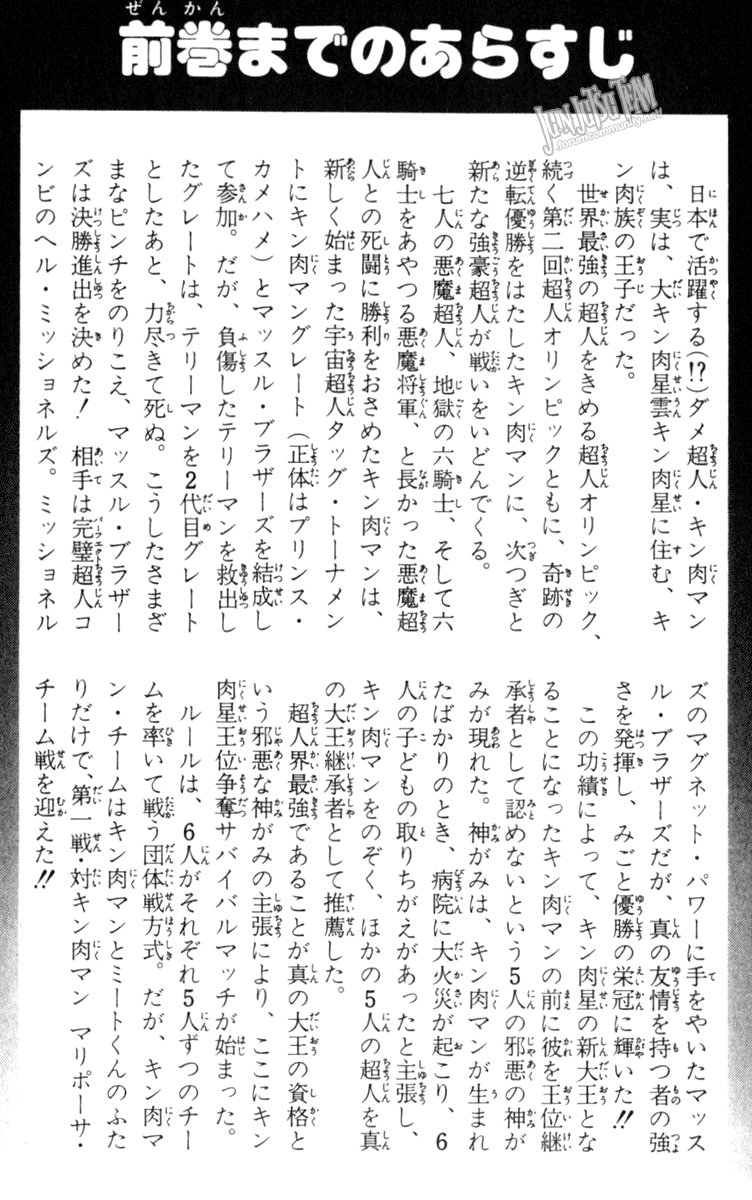 前巻までのあらすじ
JUNJUTSU TEAM
.forumcommunity.net/
日本で活躍する(!?)ダメ超人・キン肉マン
は、実は、大キン肉星雲キン肉星に住む、キ
ン肉族の王子だった。
世界最強の超人をきめる超人オリンピック、
続く第二回超人オリンピックともに、奇跡の
逆転優勝をはたしたキン肉マンに、次つぎと
新たな強豪超人が戦いをいどんでくる。
七人の悪魔超人、地獄の六騎士、そして六
騎士をあやつる悪魔将軍、と長かった悪魔超
人との死闘に勝利をおさめたキン肉マンは、
新しく始まった宇宙超人タッグ・トーナメン
トにキン肉マングレート(正体はプリンス・
カメハメ)とマッスル・ブラザーズを結成し
て参加。だが、負傷したテリーマンを救出し
たグレートは、テリーマンを2代目グレート
としたあと、力尽きて死ぬ。こうしたさまざ
まなピンチをのりこえ、マッスル・ブラザー
ズは決勝進出を決めた! 相手は完璧超人コ
ンビのヘル・ミッショネルズ。ミッショネル
ズのマグネット・パワーに手をやいたマッス
ル・ブラザーズだが、真の友情を持つ者の強
さを発揮し、みごと優勝の栄冠に輝いた!!
この功績によって、キン肉星の新大王とな
ることになったキン肉マンの前に彼を王位継
承者として認めないという5人の邪悪の神が
みが現れた。神がみは、キン肉マンが生まれ
たばかりのとき、病院に大火災が起こり、6
人の子どもの取りちがえがあったと主張し、
キン肉マンをのぞく、ほかの5人の超人を真
の大王継承者として推薦した。
超人界最強であることが真の大王の資格と
いう邪悪な神がみの主張により、ここにキン
肉星王位争奪サバイバルマッチが始まった。
ルールは、6人がそれぞれ5人ずつのチー
ムを率いて戦う団体戦方式。だが、キン肉マ
ン・チームはキン肉マンとミートくんのふた
りだけで、第一戦・対キン肉マン マリポーサ・
チーム戦を迎えた!!